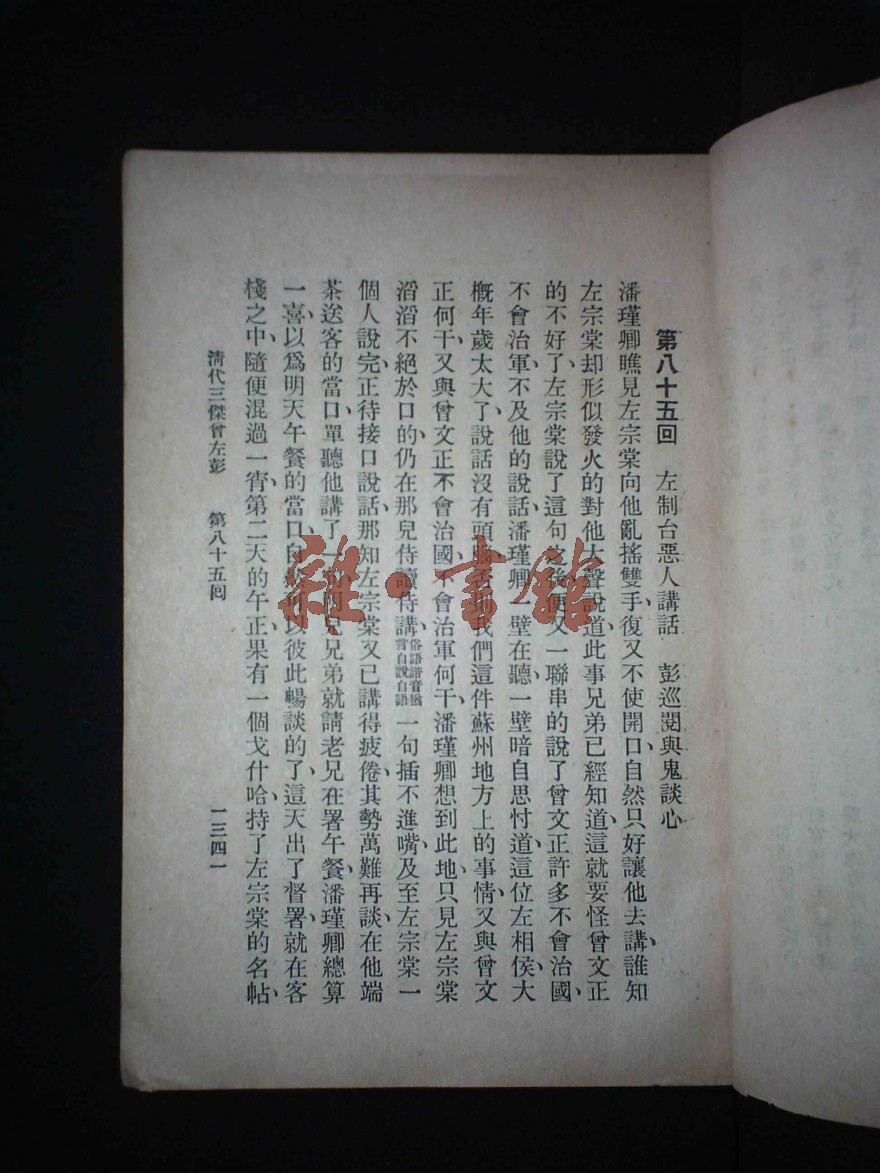 第八十五回　左制台惡人講話　彭巡閱與鬼談心
潘瑾卿瞧見左宗棠向他亂搖雙手、復又不使開口、自然只好讓他去講、誰知
左宗棠却形似發火的對他大聲說道、此事兄弟已經知道、這就要怪曾文正
的不好了、左宗棠說了這句之後、便又一聯串的說了曾文正許多不會治國、
不會治軍、不及他的說話、潘瑾卿一壁在聽、一壁暗自思忖道、這位左相侯、大
概年歲太大了、說話沒有頭我們這件蘇州地方上的事情、又與曾文
正何干、又與曾文正不會治國、不會治軍何干、潘瑾卿想到此地、只見左宗棠
滔滔不絕於口的、仍在那兒侍讀侍講、俗語諧音猶言自說自語一句插不進嘴、及至左宗棠一
個人說完、正待接口說話、那知左宗棠又已講得疲倦、其勢萬難再談、在他端
茶送客的當口、單聽他講了一句、兄弟就請老兄在署午餐、潘瑾卿總算
一喜、以爲明天午餐的當口、以彼此暢談的了、這天出了督署、就在客
棧之中、隨便混過一宵、第二天的午正、果有一個戈什哈、持了左宗棠的名帖、
清代三傑曾左彭　第八十五回　一三四一
雜·書館